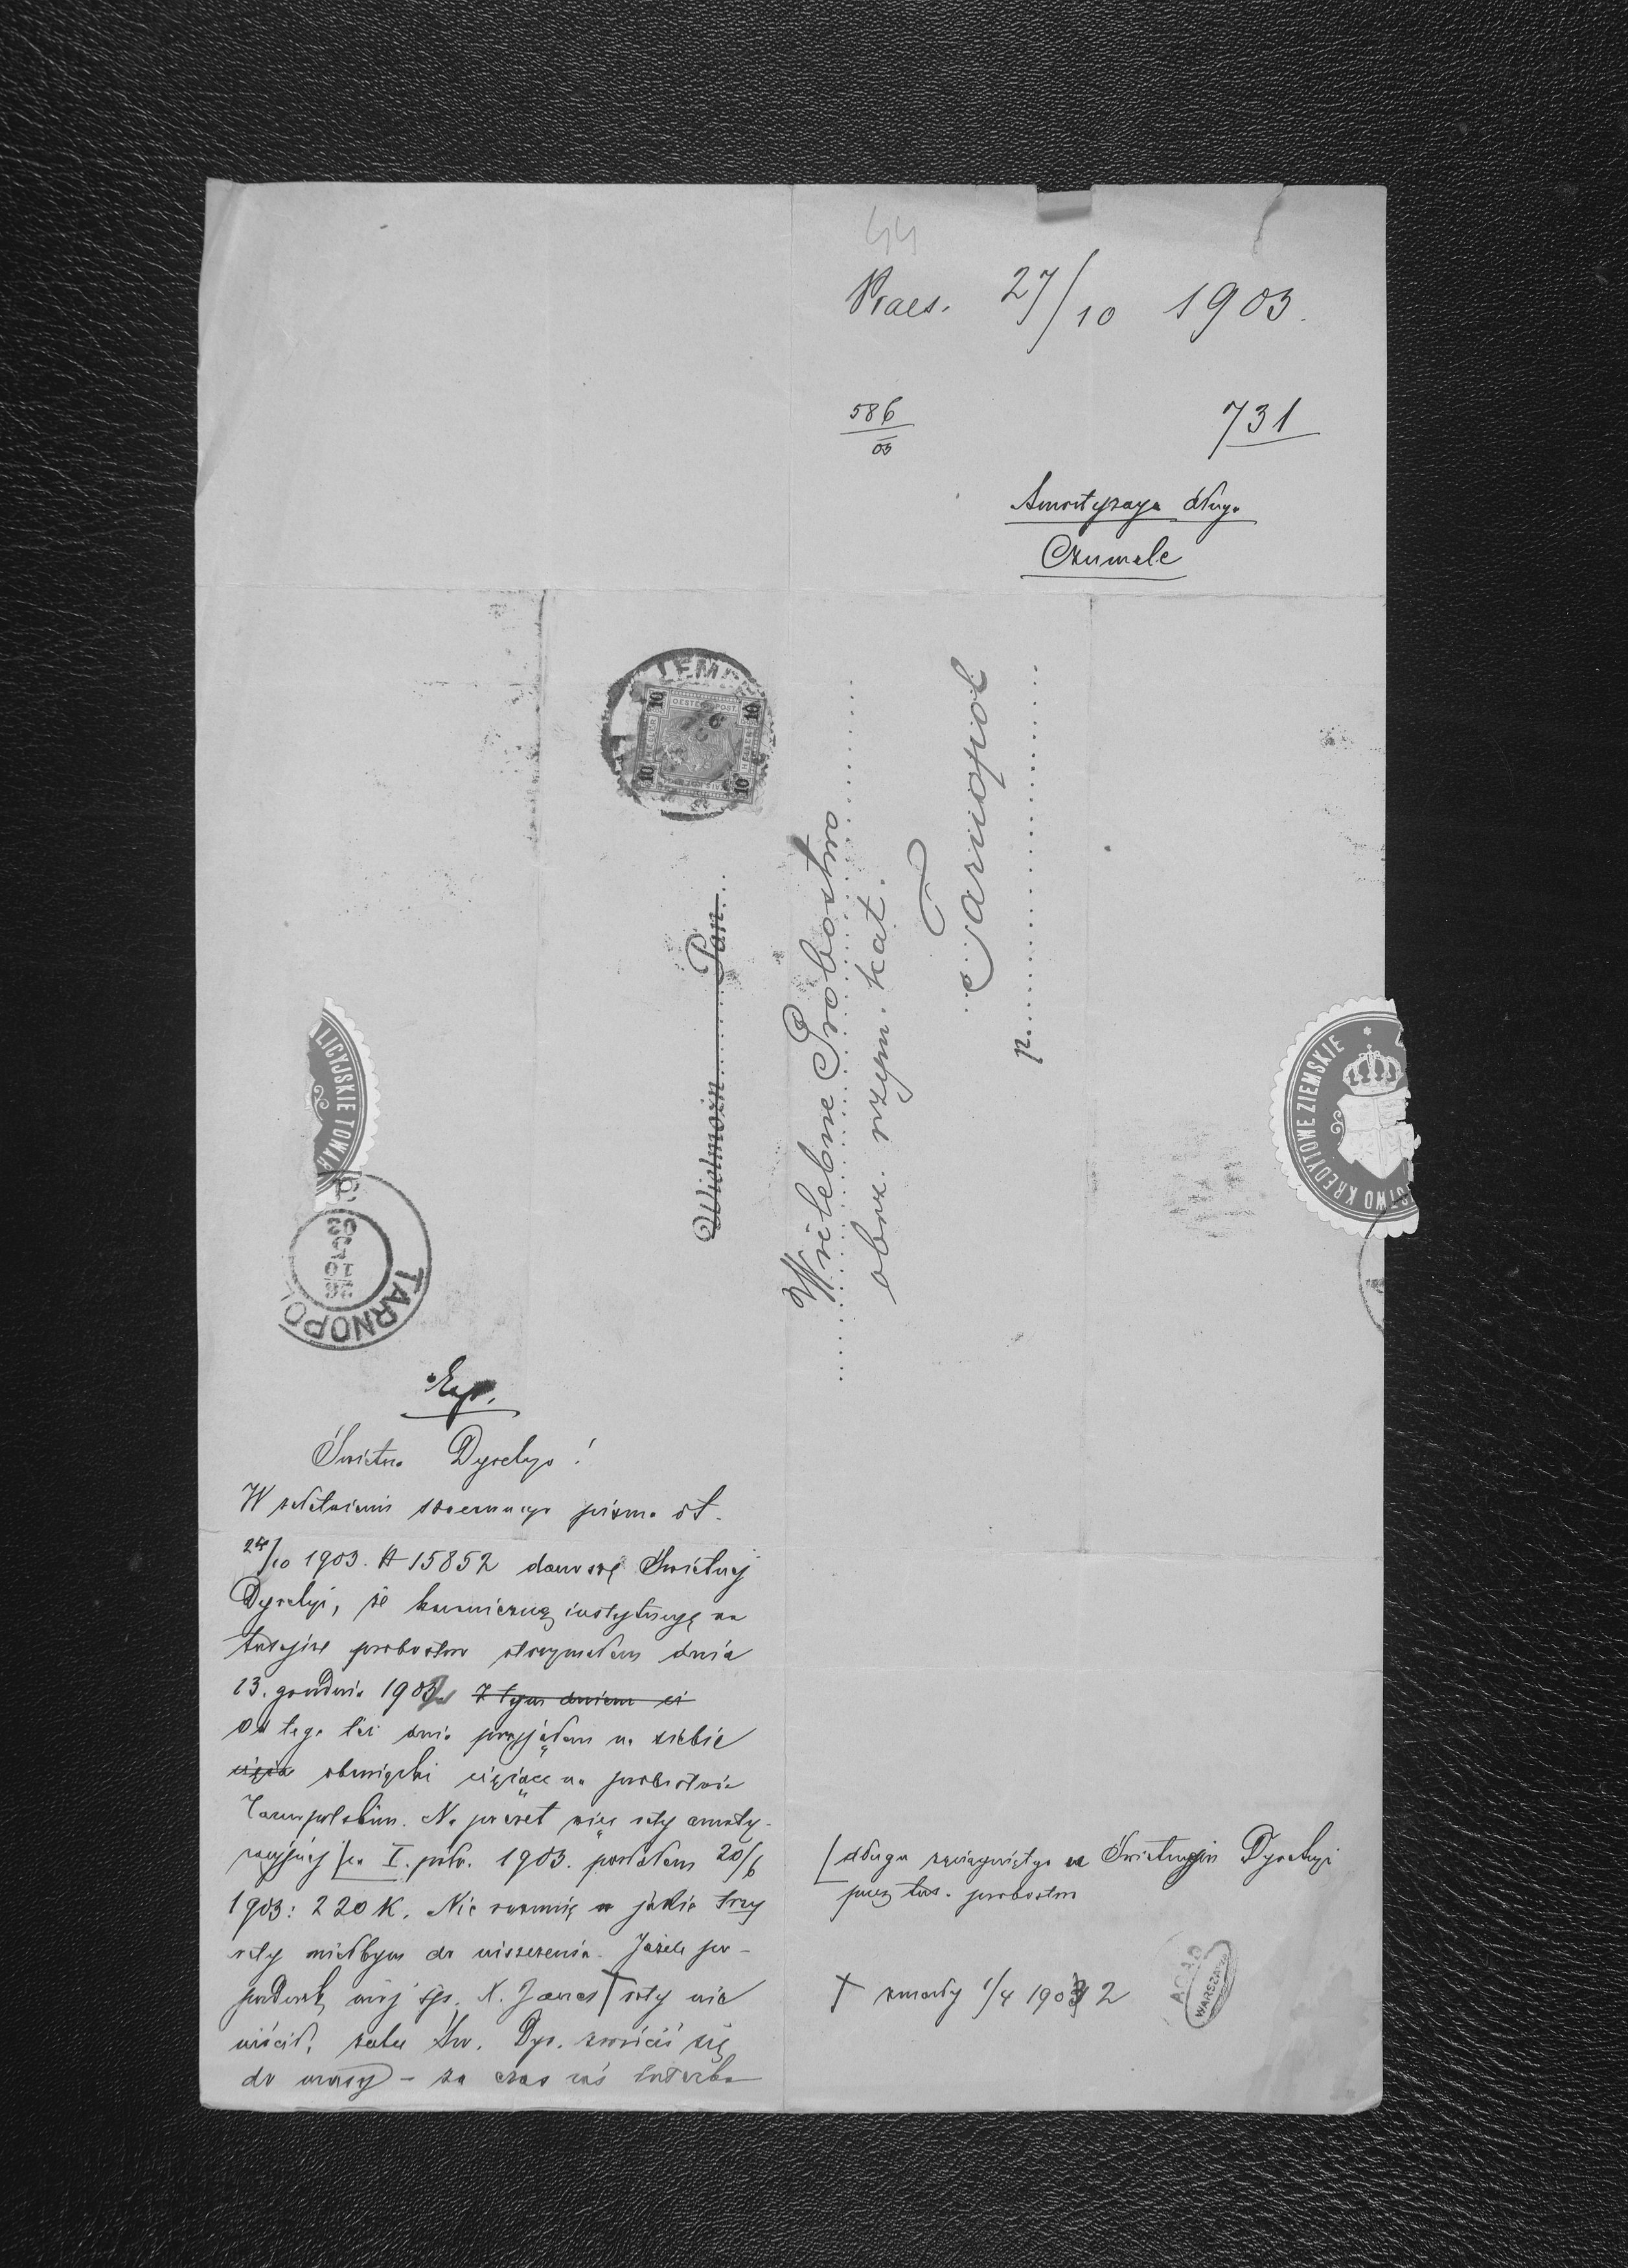 44
Praes. 27/10 1903.
586/03
731
Amortyzacya długu
Czumale
LEMB
OESTERR. POST.
10 10
10 10
Wielmożn Pan
Wielebne Probostwo
obrz. rzym. kat.
Tarnopol
p.
LICYJSKIE TOWAR
STWO KREDYTOWE ZIEMSKIE
TARNOPOL
26
10
03
Exp.
Świetna Dyrekcyo!
W załatwieniu szacownego pisma dt.
24/10 1903. A 15852 donoszę Świetnej
Dyrekcyi, że kanoniczną instytucyę na
tutejsze probostwo otrzymałem dnia
13. grudnia 1902. Z tym dniem
Od tego też dnia przyjąłem na siebie
obowiązki ciążące na probostwie
Tarnopolskim. Na poczet więc raty amorty-
zacyjnej za I. półr. 1903. posłałem 20/6
1903: 220 K. Nie rozumię jakie trzy
raty miałbym do uiszczenia. Jeżeli po-
przednik mój śp. X. raty nie
uiścił, Św. Dyr. zwrócić się
do masy – za czas zaś
długu zaciągniętego w Świetnej Dyrekcyi
przez tut. probostwo
† zmarły 1/4 1902
AGAD
WARSZAWA